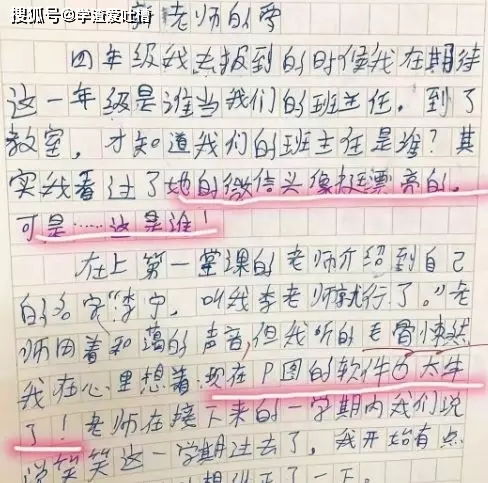 搜狐号@学道爱吐槽
新老师的
四年级我去报到的时候我在期待
这一年级是谁当我们的班主任。到了
教室,才知道我们的班主任是谁?其
实我看过了她的微信头像挺漂亮的。
可是……这是谁!
在上第一堂课的老师介绍到自己
的名字“李宁,叫我李老师就行了。”老
师用着和蔼的声音,但我听的毛骨悚然
我在心里想着:现在P图的软件也太牛
了!老师在接下来的一学期内我们说
说笑笑这一学期过去了,我开始有点
想 正了一下。